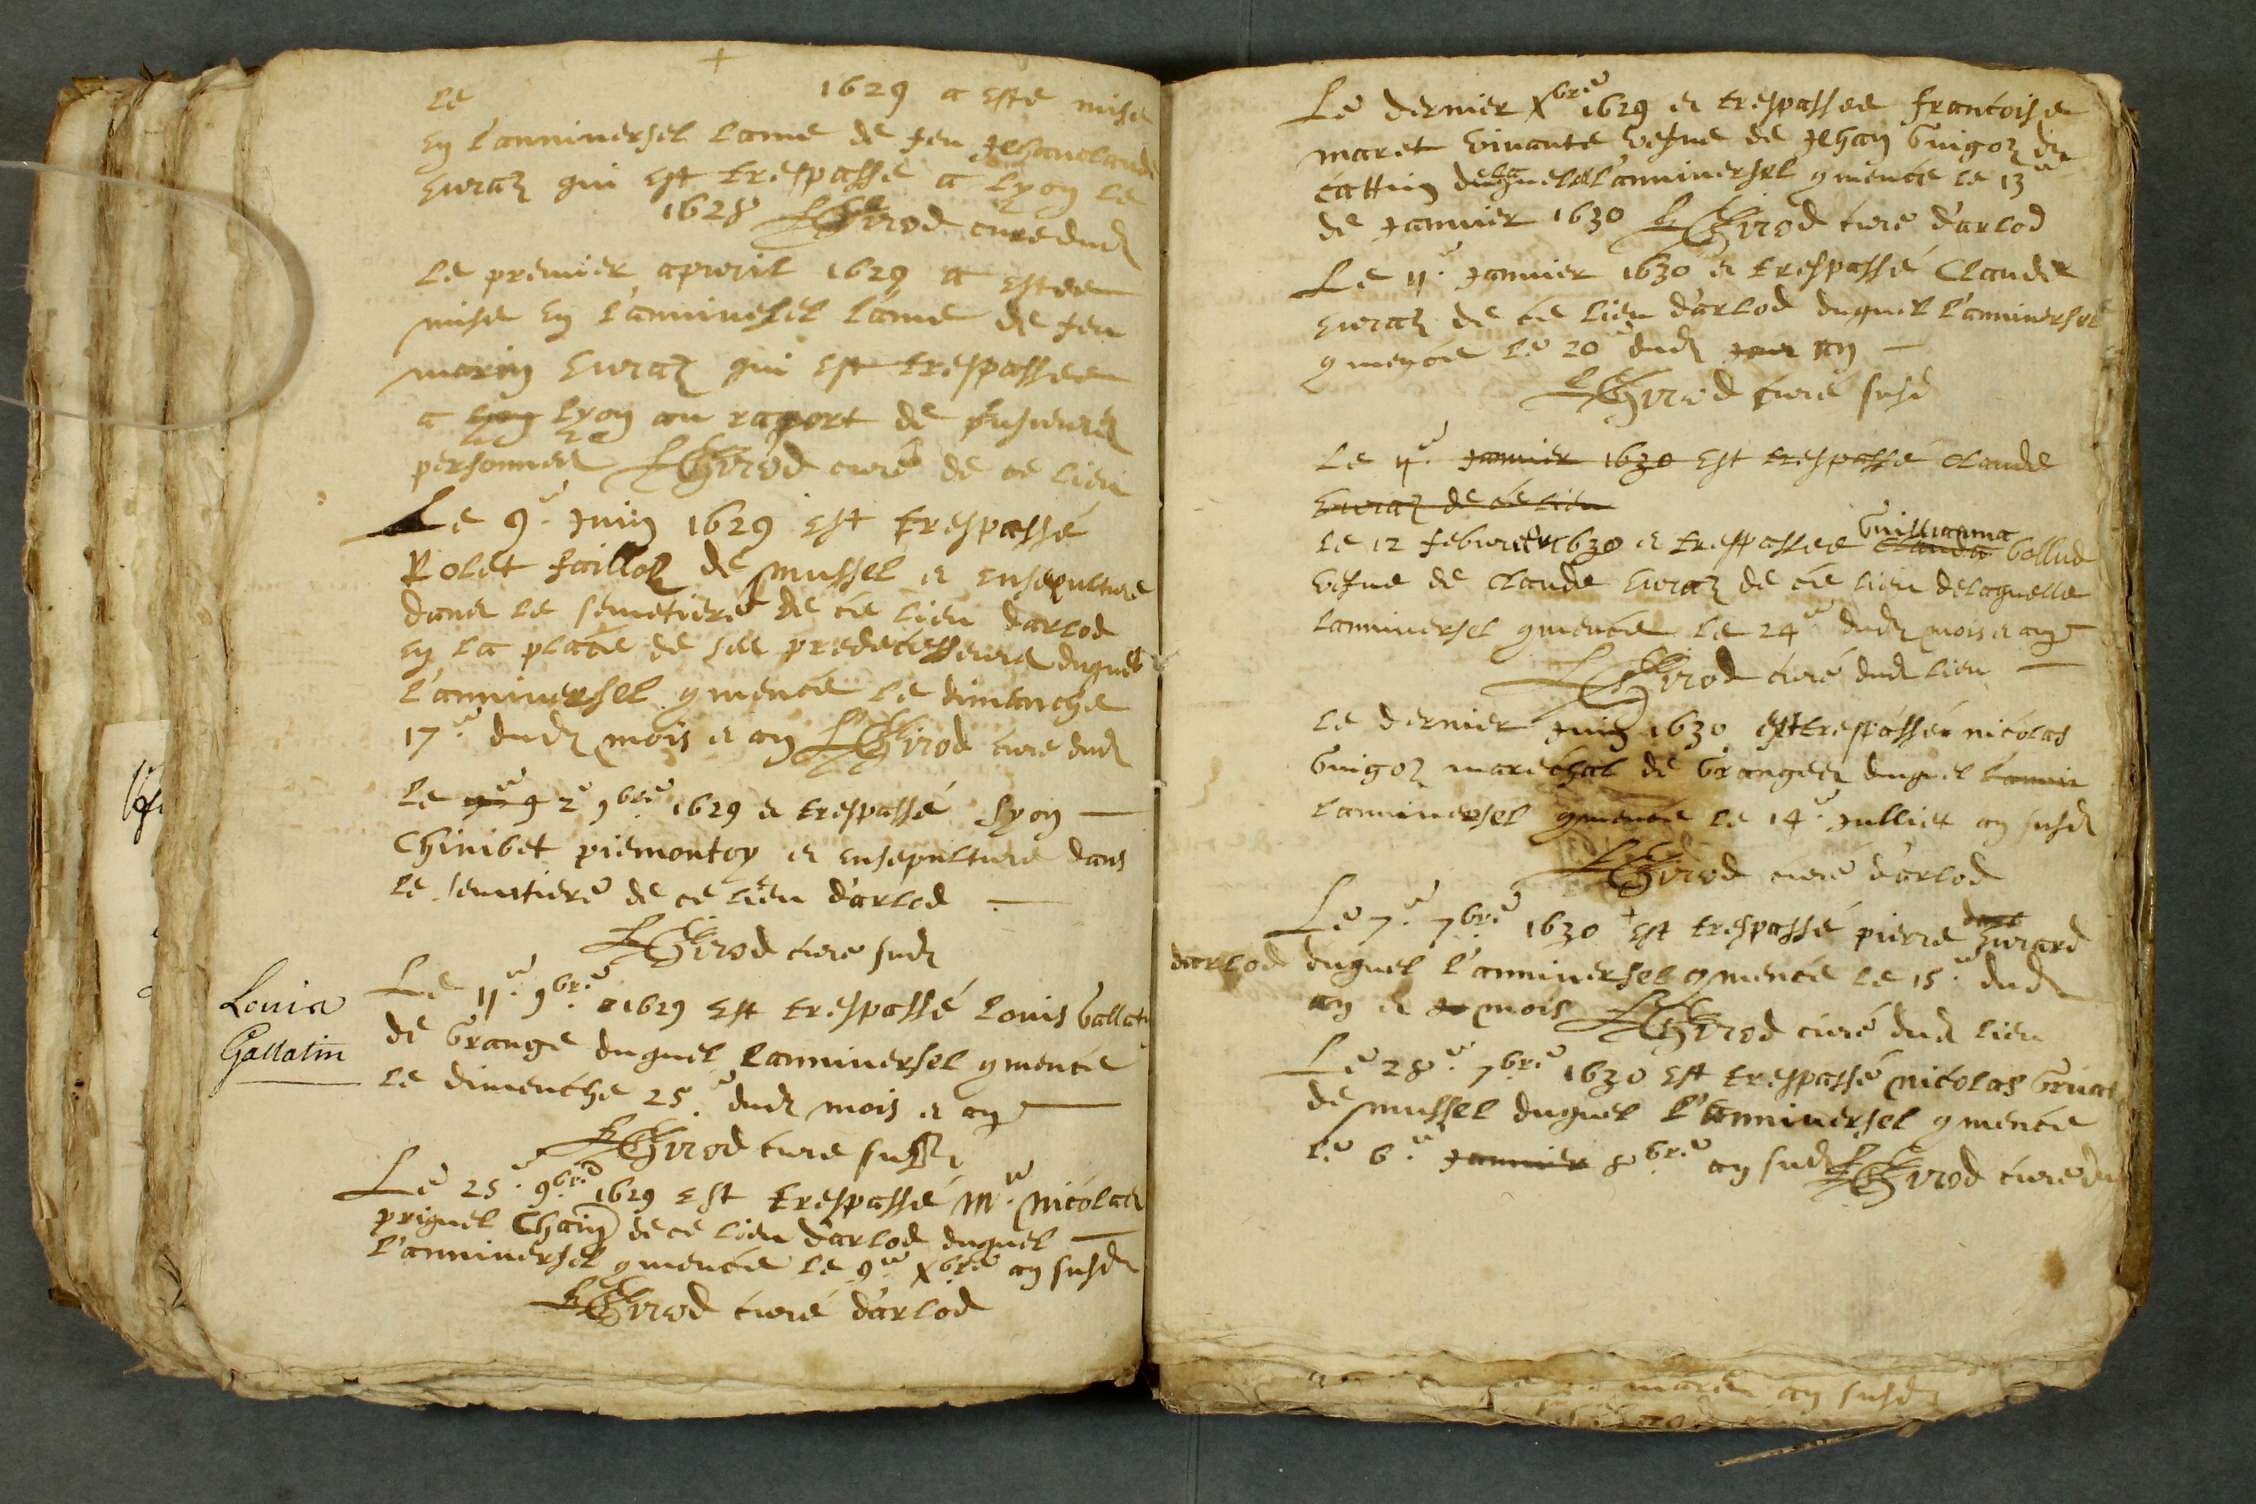 Le 1629 a este mise
en l'anniversel lame de feu Jehanclaude
Evraz qui est trespasse a Lyon le
1628 Girod cure dud
Le premier apvril 1629 a estee
mise en l'anniversel l'ame de feu
marin Evraz qui est trespassee
a Lyon au raport de
personnes Girod curé de ce lieu
Le 9.e Juin 1629 est trespassé
Rolet failloz de mussel et ensepulture
dans le semetiere de ce lieu darlod
en la place de ses predecesseurs duquel
l'anniversel 9mence le dimanche
17.e dud mois et an Girod cure dud
Le 2e 9bre 1629 e trespassé Lyon
Chinibet piemontoy et ensepulture dans
le semetiere de ce lieu d'arlod
Girod cure sud
Louis
Gallatin
Le 11.e 9bre 1629 est trespassé Louis Gallatin
de Grange duquel Lanniversel 9mence
le dimenche 25.e dud mois et an
Girod cure
Le 25.e 9bre 1629 est trespassé M.e Nicolas
priquel Chain de ce lieu d'arlod duquel
l'anniversel 9mence le 9e Xbre an susd
Girod curé d'arlod
Le dernier Xbre 1629 e trespassee francoise
maret vivante vefve de Jehan Guigoz dit
cattin delaquelle l'anniversel 9mence le 13e
de Janvier 1630 Girod curé d'arlod
Le 11.e Janvier 1630 e trespassé Claude
Evraz de ce lieu d'arlod duquel l'anniversel
9mence le 20e dud an
Girod curé susd
Le 11.e Janvier 1630 est trespassé claude
Evraz de ce lieu
Le 12 febvrier 1630 e trespassee Guillauma Gollud
vefve de claude Evraz de ce lieu delaquelle
lanniversel 9mence le 24e dud mois et an
Girod curé dud lieu
Le dernier Juin 1630 est trespassé nicolas
Guigoz marechal de Granges duquel lanni
lanniversel 9mence le 14.e Julliet an susd
Girod curé d'arlod
Le 7.e 7bre 1630 est trespassé pierre Evrard
darlod duquel l'anniversel 9mence le 15.e dud
an et mois Girod curé dud lieu
Le 28.e 7bre 1630 est trespassé nicolas Gruat
de mussel duquel l'anniversel 9mence
le 6.e Janvier 8bre an sud Girod cure du
mars an susd